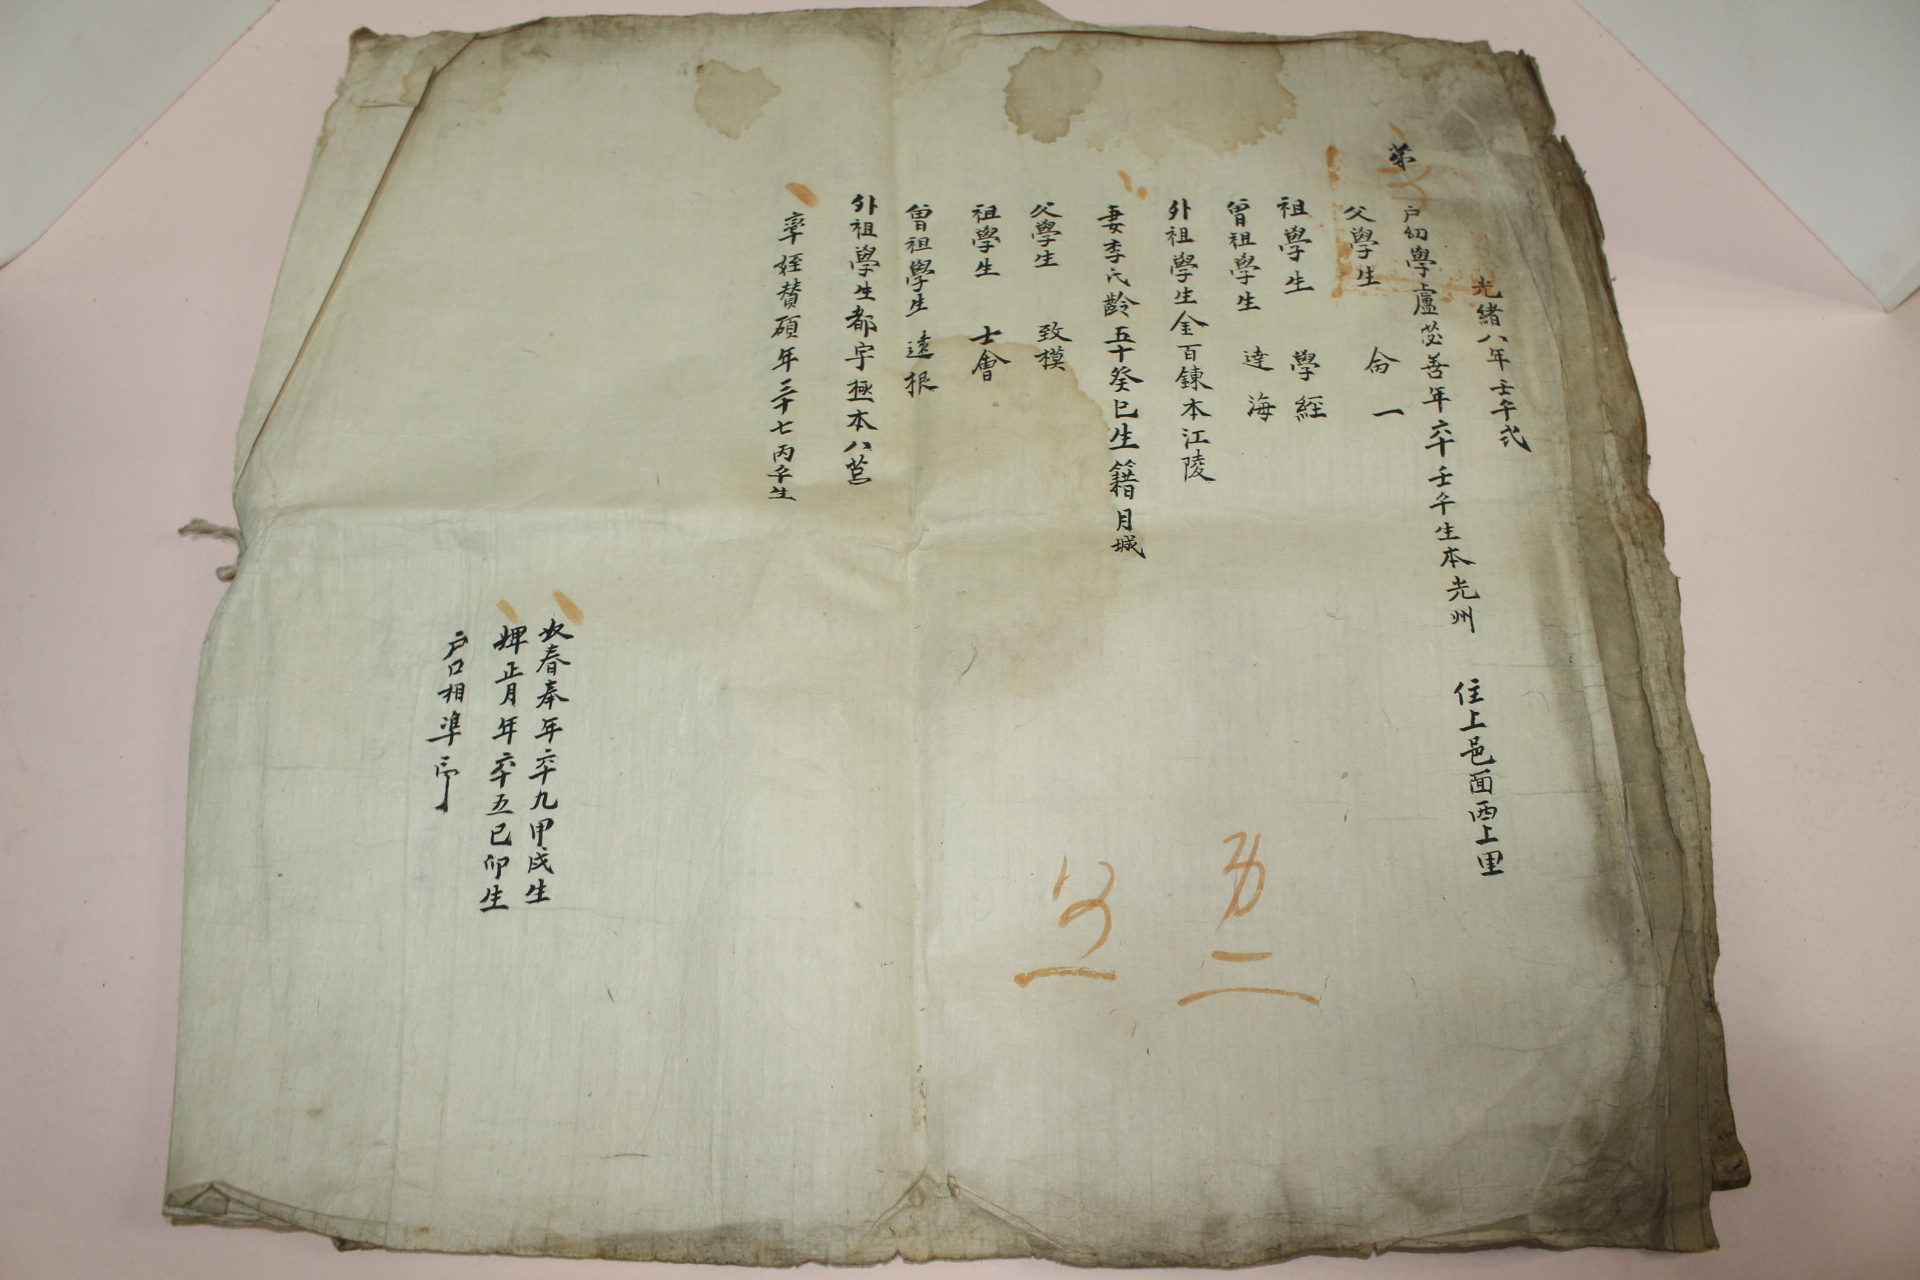 光緒八年壬午式
第 戶幼學盧苾善年六十壬午生本光州 住上邑面西上里
父學生 侖一
祖學生 學經
曾祖學生 達海
外祖學生金百鍊本江陵
妻李氏齡五十癸巳生籍月城
父學生 致模
祖學生 士會
曾祖學生 遠根
外祖學生都宇極本八莒
率姪贊碩年三十七丙午生
奴春奉年六十九甲戌生
婢正月年六十五己卯生
戶口相準印